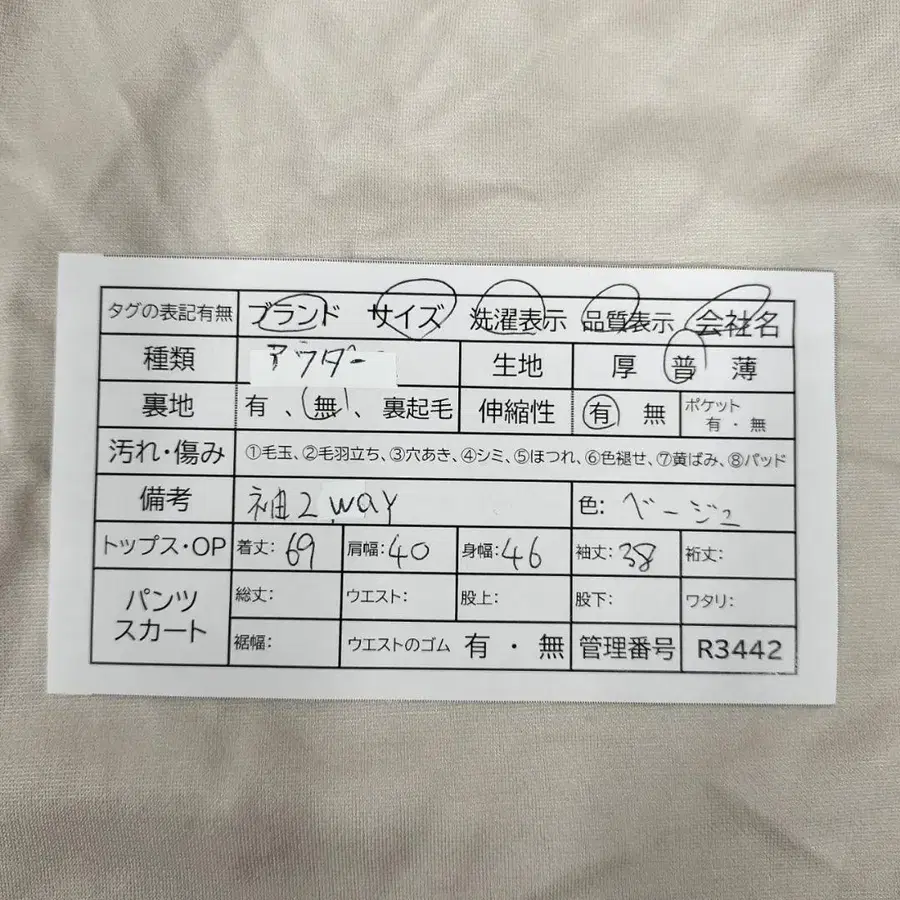 タグの表記有無 ブランド サイズ 洗濯表示 品質表示 会社名
種類 アウター 生地 厚 普 薄
裏地 有、無、裏起毛 伸縮性 有 無 ポケット 有・無
汚れ・傷み ①毛玉、②毛羽立ち、③穴あき、④シミ、⑤ほつれ、⑥色褪せ、⑦黄ばみ、⑧パッド
備考 袖2way 色: ベージュ
トップス・OP 着丈:69 肩幅:40 身幅:46 袖丈:38 裄丈:
パンツ スカート 総丈: ウエスト: 股上: 股下: ワタリ:
裾幅: ウエストのゴム 有・無 管理番号 R3442